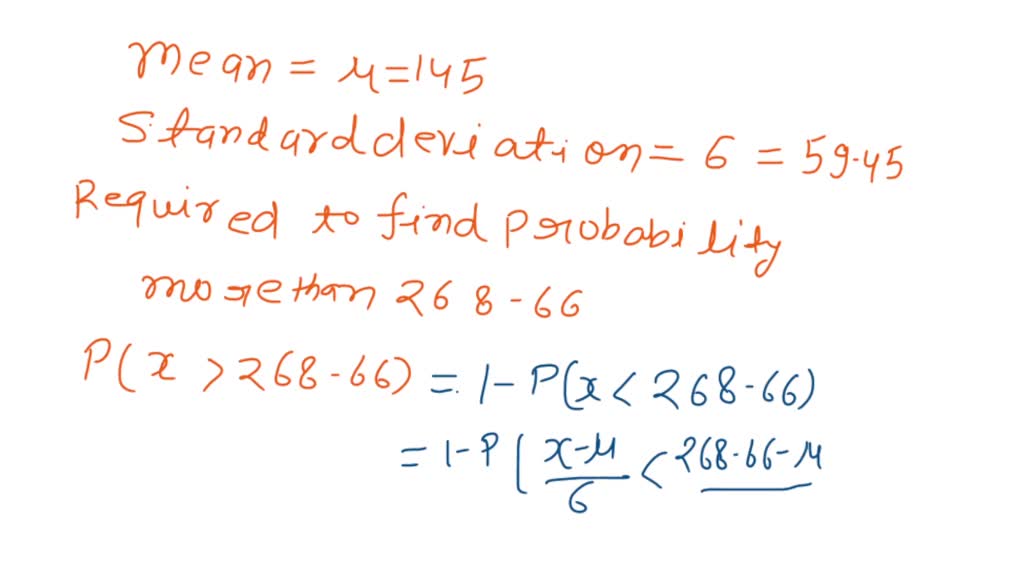 Mean = μ = 145
Standard deviation = 6 = 59.45
Required to find probability
more than 268-66
P(x > 268-66) = 1 - P(x < 268-66)
= 1 - P( x-μ / 6 < 268.66-μ